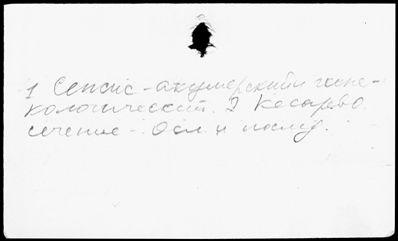 1 Сепсис - акушерский гине-
кологический. 2 Кесарево
сечение - Осл. и послед.